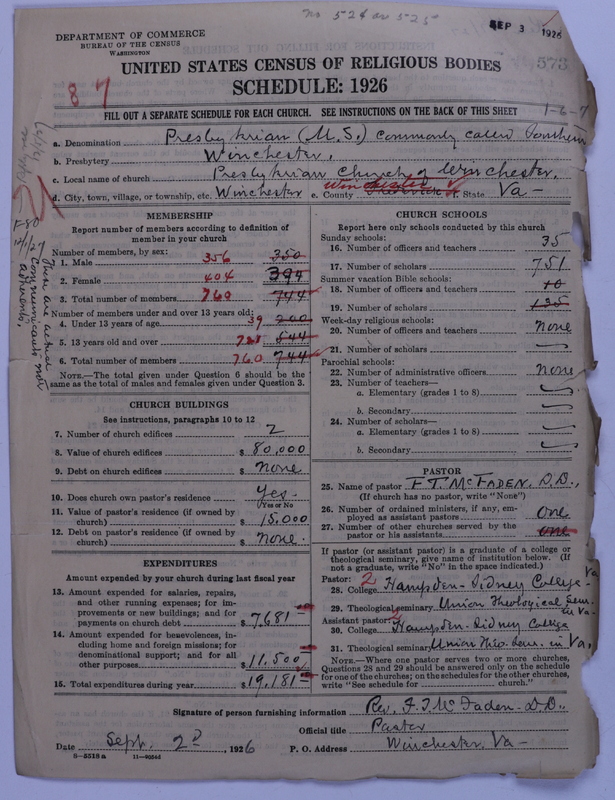 no 524 or 525
SEP 3 1926
DEPARTMENT OF COMMERCE
BUREAU OF THE CENSUS
WASHINGTON
UNITED STATES CENSUS OF RELIGIOUS BODIES
573
SCHEDULE: 1926
87
FILL OUT A SEPARATE SCHEDULE FOR EACH CHURCH. SEE INSTRUCTIONS ON THE BACK OF THIS SHEET
1-6-7
a. Denomination Presbyterian (U.S.) commonly called Southern
b. Presbytery Winchester.
c. Local name of church Presbyterian Church of Winchester.
d. City, town, village, or township, etc. Winchester e. County Winchester f. State Va-
MEMBERSHIP
Report number of members according to definition of
member in your church
Number of members, by sex:
1. Male 356 350
2. Female 404 394
3. Total number of members 760 744
Number of members under and over 13 years old:
4. Under 13 years of age 39 200
5. 13 years old and over 721 544
6. Total number of members 760 744
NOTE.—The total given under Question 6 should be
same as the total of males and females given under Question 3.
There are actual
Communicants not
adherents.
CHURCH BUILDINGS
See instructions, paragraphs 10 to 12
7. Number of church edifices 2
8. Value of church edifices $ 80,000
9. Debt on church edifices $ none
10. Does church own pastor's residence Yes-
Yes or No
11. Value of pastor's residence (if owned by
church) $ 15.000
12. Debt on pastor's residence (if owned by
church) $ none.
EXPENDITURES
Amount expended by your church during last fiscal year
13. Amount expended for salaries, repairs,
and other running expenses; for im-
provements or new buildings; and for
payments on church debt $ 7,681
14. Amount expended for benevolences, in-
cluding home and foreign missions; for
denominational support; and for all
other purposes $ 11,500
15. Total expenditures during year $ 19,181
CHURCH SCHOOLS
Report here only schools conducted by this church
Sunday schools:
16. Number of officers and teachers 35
17. Number of scholars 751
Summer vacation Bible schools:
18. Number of officers and teachers 10
19. Number of scholars 135
Week-day religious schools:
20. Number of officers and teachers none
21. Number of scholars
Parochial schools:
22. Number of administrative officers none
23. Number of teachers—
a. Elementary (grades 1 to 8)
b. Secondary
24. Number of scholars—
a. Elementary (grades 1 to 8)
b. Secondary
PASTOR
25. Name of pastor F.T. McFaden, D.D.,
(If church has no pastor, write "None")
26. Number of ordained ministers, if any, em-
ployed as assistant pastors one
27. Number of other churches served by the
pastor or his assistants one
If pastor (or assistant pastor) is a graduate of a college or
theological seminary, give name of institution below. (If
not a graduate, write "No" in the space indicated.)
Pastor: 2
28. College Hampden-Sidney College- Va
29. Theological seminary Union Theological Sem. in Va-
Assistant pastor: 2
30. College Hampden-Sidney College
31. Theological seminary Union Theo. Sem. in Va.
NOTE.—Where one pastor serves two or more churches,
Questions 28 and 29 should be answered only on the schedule
for one of the churches; on the schedules for the other churches,
write "See schedule for church."
Signature of person furnishing information Rev. F.T. McFaden-D.D.
Official title Pastor
Date Sept. 2d, 1926 P. O. Address Winchester, Va-
8—5518a 11—9056b